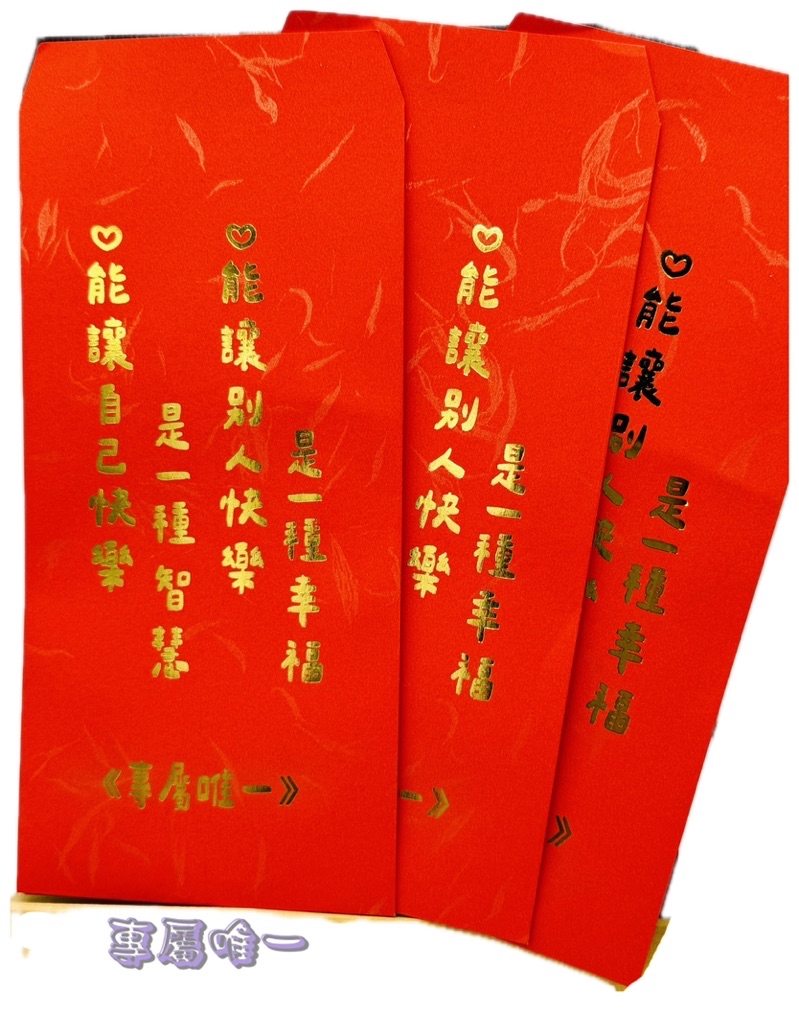 ♡能讓自己快樂
是一種智慧
♡能讓别人快樂
是一種幸福
《專屬唯一》
♡能讓别人快樂
是一種幸福
一》
♡能讓别人快
是一種幸福
》
專屬唯一